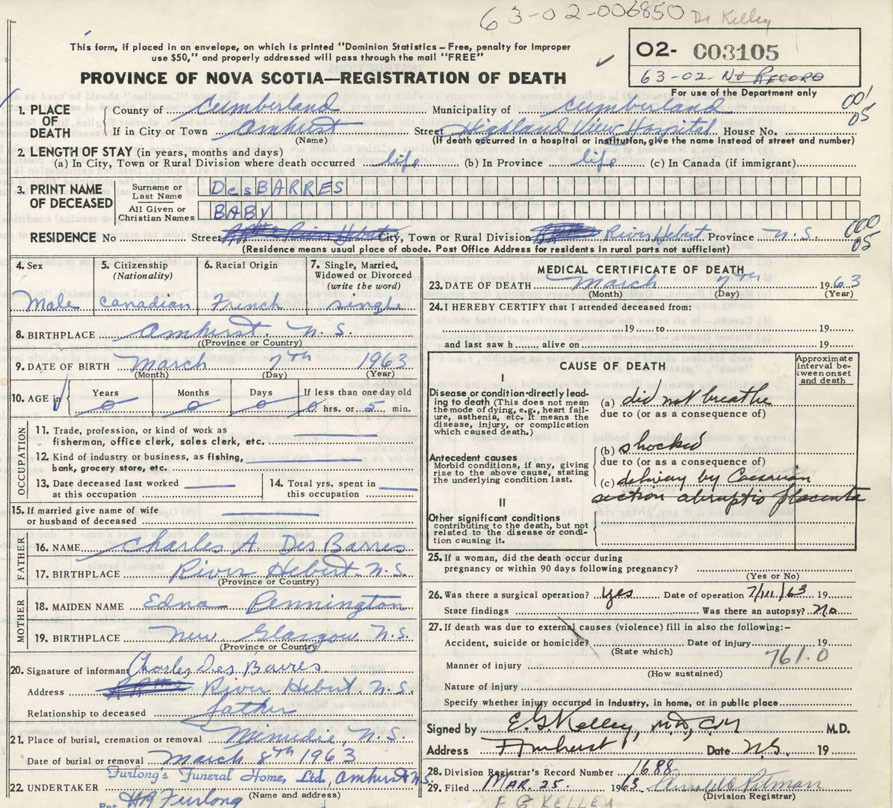 63-02-006850 De Kelley
This form, if placed in an envelope, on which is printed "Dominion Statistics - Free, penalty for improper
use $50," and properly addressed will pass through the mail "FREE"
02- C03105
63-02- No Record
For use of the Department only
PROVINCE OF NOVA SCOTIA—REGISTRATION OF DEATH
1. PLACE OF DEATH County of Cumberland Municipality of Cumberland 001
If in City or Town Amherst Street Highland View Hospital House No. 05
(Name) (If death occurred in a hospital or institution, give the name instead of street and number)
2. LENGTH OF STAY (in years, months and days)
(a) In City, Town or Rural Division where death occurred life (b) In Province life (c) In Canada (if immigrant)
3. PRINT NAME OF DECEASED Surname or Last Name DesBARRES
All Given or Christian Names BABY
RESIDENCE No Street City, Town or Rural Division River Hebert Province N.S. 000 05
(Residence means usual place of abode. Post Office Address for residents in rural parts not sufficient)
4. Sex Male
5. Citizenship (Nationality) Canadian
6. Racial Origin French
7. Single, Married, Widowed or Divorced (write the word) single
8. BIRTHPLACE Amherst, N.S.
(Province or Country)
9. DATE OF BIRTH March 7th 1963
(Month) (Day) (Year)
10. AGE in Years 0 Months 0 Days 0 If less than one day old 0 hrs. or 5 min.
OCCUPATION
11. Trade, profession, or kind of work as
fisherman, office clerk, sales clerk, etc.
12. Kind of industry or business, as fishing,
bank, grocery store, etc.
13. Date deceased last worked at this occupation
14. Total yrs. spent in this occupation
15. If married give name of wife
or husband of deceased
FATHER
16. NAME Charles A. Des Barres
17. BIRTHPLACE River Hebert N.S.
(Province or Country)
MOTHER
18. MAIDEN NAME Edna Pennington
19. BIRTHPLACE New Glasgow N.S.
(Province or Country)
20. Signature of informant Charles Des Barres
Address River Hebert, N.S.
Relationship to deceased father
21. Place of burial, cremation or removal Minudie, N.S.
Date of burial or removal March 8th 1963
22. UNDERTAKER Furlong's Funeral Home, Ltd, Amherst N.S.
(Name and address)
Per HA Furlong
MEDICAL CERTIFICATE OF DEATH
23. DATE OF DEATH March 7th 1963
(Month) (Day) (Year)
24. I HEREBY CERTIFY that I attended deceased from:
19 to 19
and last saw h alive on 19
CAUSE OF DEATH
Approximate interval between onset and death
I
Disease or condition directly leading to death (This does not mean the mode of dying, e.g., heart failure, asthenia, etc. It means the disease, injury, or complication which caused death.)
(a) did not breathe
due to (or as a consequence of)
Antecedent causes
Morbid conditions, if any, giving rise to the above cause, stating the underlying condition last.
(b) shocked
due to (or as a consequence of)
(c) delivery by Caesarian
section abruptio placenta
II
Other significant conditions
contributing to the death, but not related to the disease or condition causing it.
25. If a woman, did the death occur during
pregnancy or within 90 days following pregnancy?
(Yes or No)
26. Was there a surgical operation? yes Date of operation 7/III/63 19
State findings Was there an autopsy? no
27. If death was due to external causes (violence) fill in also the following:-
Accident, suicide or homicide? Date of injury 19
(State which) 761.0
Manner of injury
(How sustained)
Nature of injury
Specify whether injury occurred in industry, in home, or in public place
Signed by E.G. Kelley, MD, CM M.D.
Address Amherst Date N.S. 19
28. Division Registrar's Record Number 1688
29. Filed MAR. 25. 1963
(Division Registrar)
E G KELLEY